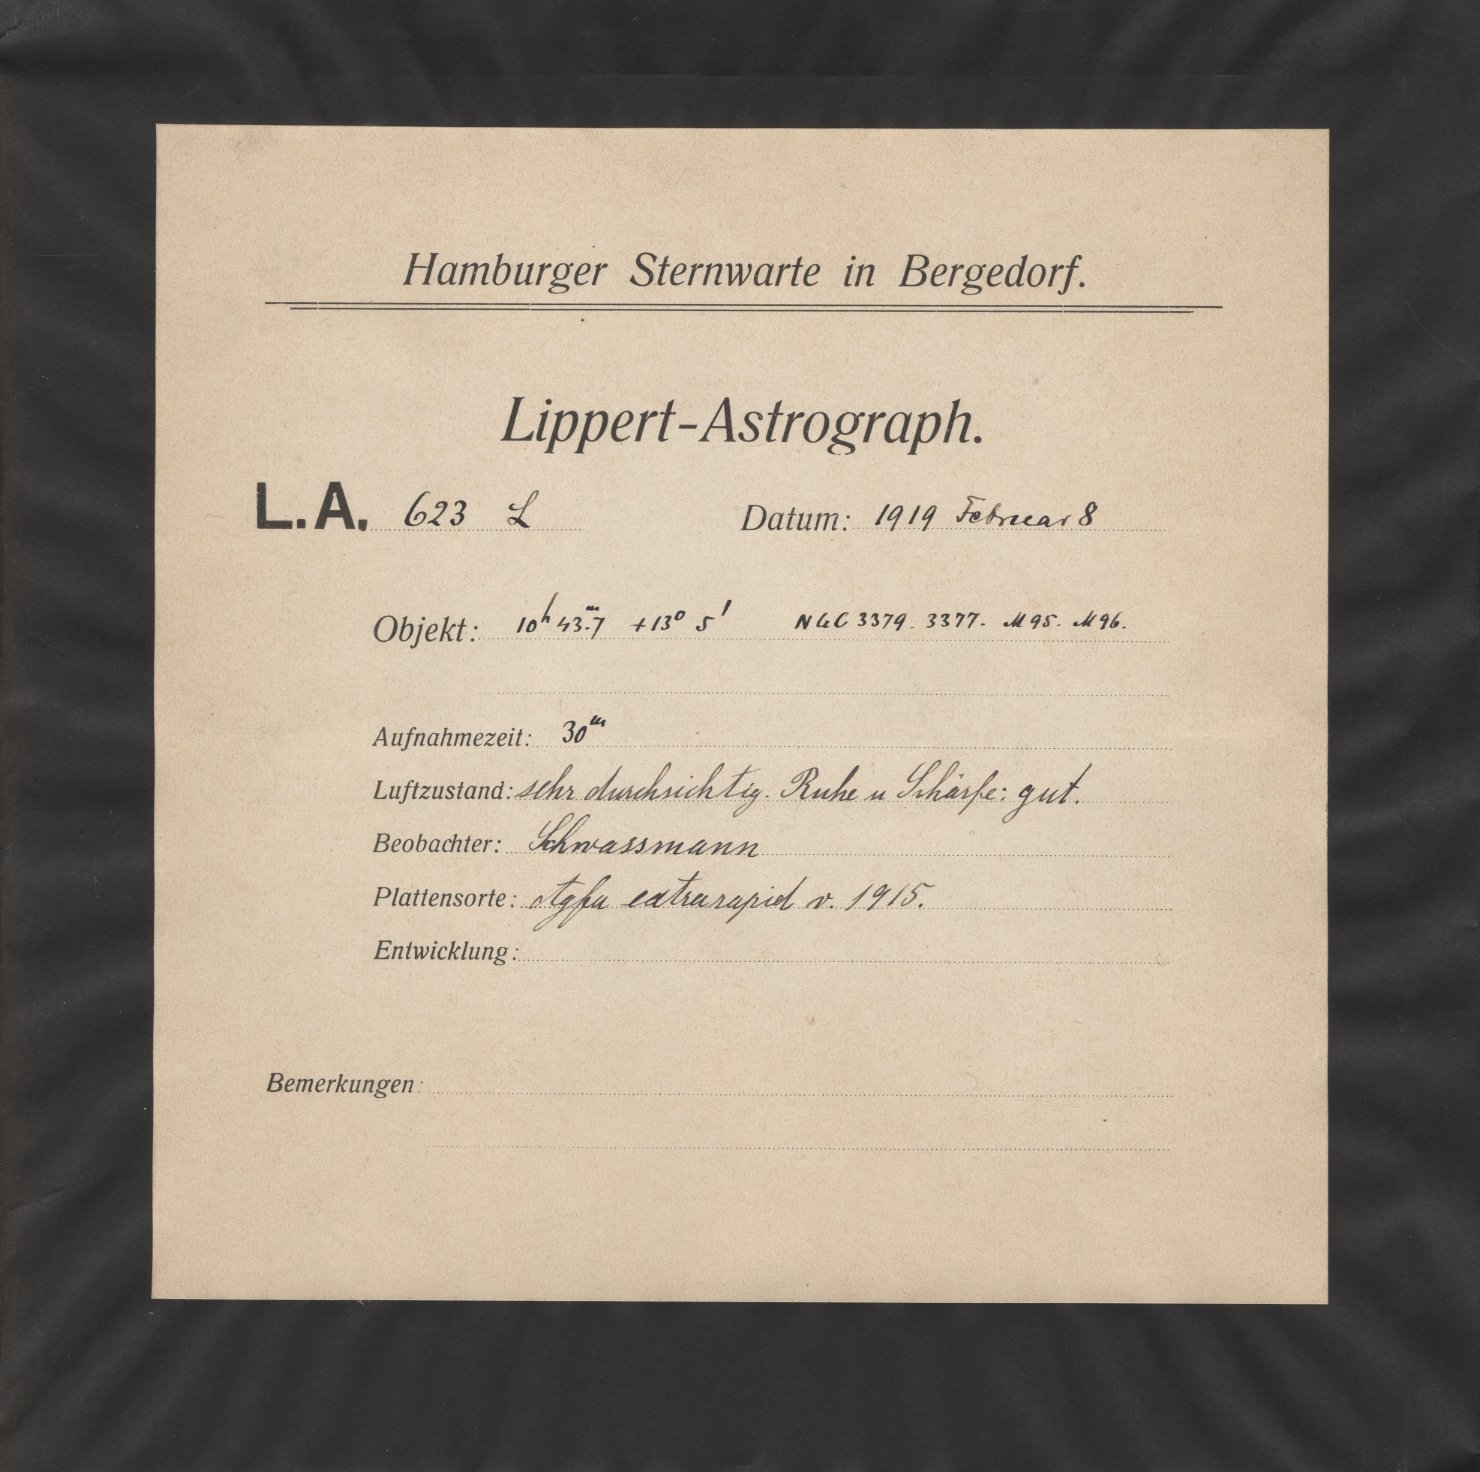 Hamburger Sternwarte in Bergedorf.
Lippert-Astrograph.
L.A. 623 L Datum: 1919 Februar 8
Objekt: 10ʰ 43ᵐ.7 +13° 5' NGC 3379. 3377. M95. M96.
Aufnahmezeit: 30ᵐ
Luftzustand: sehr durchsichtig. Ruhe u Schärfe: gut.
Beobachter: Schwassmann
Plattensorte: Agfa extrarapid v. 1915.
Entwicklung:
Bemerkungen: